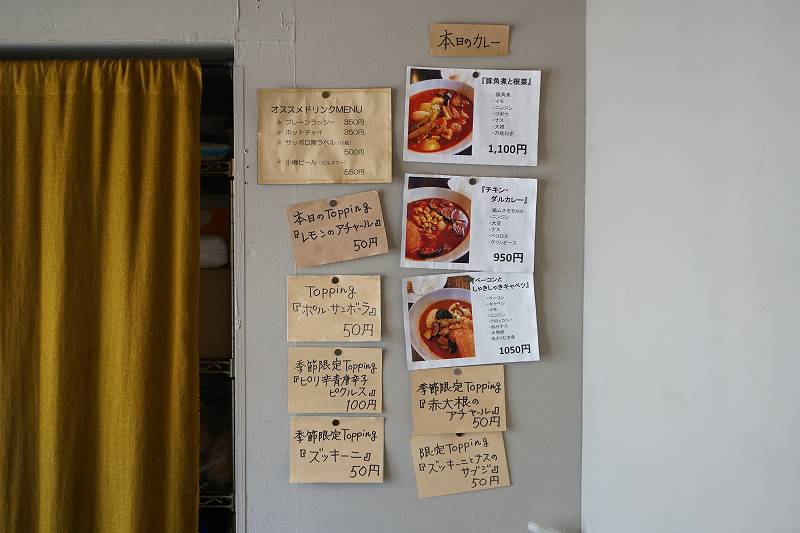 本日のカレー
オススメドリンクMENU
プレーンラッシー 350円
ホットチャイ 350円
サッポロ黒ラベル(小瓶)
500円
小樽ビール(ピルスナー)
550円
本日のTopping
『レモンのアチャール』
50円
Topping
『ポル・サンボーラ』
50円
季節限定Topping
『ピリ辛青唐辛子
ピクルス』
100円
季節限定Topping
『ズッキーニ』
50円
『豚角煮と根菜』
・豚角煮
・イモ
・ニンジン
・ゴボウ
・ナス
・大根
・万能ねぎ
1,100円
『チキン・
ダルカレー』
・ニンジン
・大豆
・ナス
・ペコロス
・グリンピース
950円
『ベーコンと
しゃきしゃきキャベツ』
・ベーコン
・キャベツ
・イモ
・ニンジン
・ブロッコリー
・半熟卵
1050円
季節限定Topping
『赤大根の
アチャール』
50円
限定Topping
『ズッキーニとナスの
サブジ』
50円